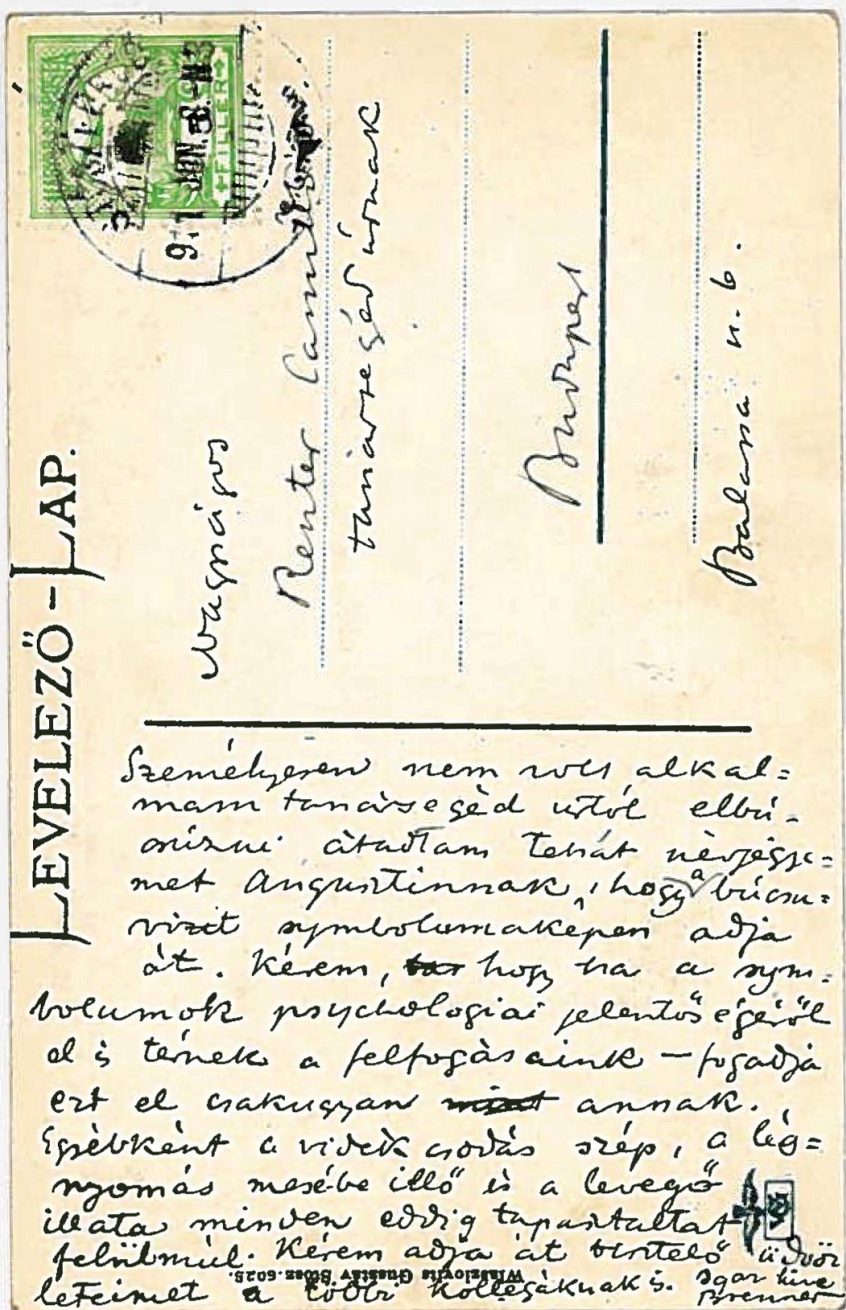 LEVELEZŐ-LAP.
FILLÉR
JUN.
Nagyságos
Renter Camill
tanársegéd úrnak
Budapest
Balassa u. 6.
Személyesen nem volt alkal=
mam tanársegéd úrtól elbú-
csúzni átadtam tehát névjegye=
met Augustinnak, hogy a búcsu=
vizit symbolumaképen adja
át. Kérem, hogy ha a sym=
bolumok psychologiai jelentőségéről
el is térnek a felfogásaink – fogadja
ezt el csakugyan annak.
Egyébként a vidék csodás szép, a lég=
nyomás mesébe illő és a levegő
illata minden eddig tapasztaltat
felülmúl. Kérem adja át tisztelő üdvöz
leteimet a többi kollegáknak is.
igaz híve
Brenner